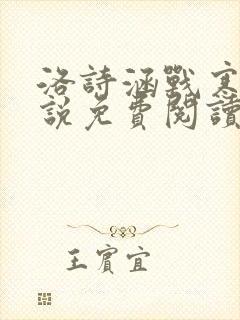 洛詩涵戰寒
說免費閱讀
王賓宜